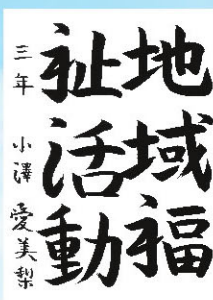 地域福
祉活動
三年 小澤 愛美梨